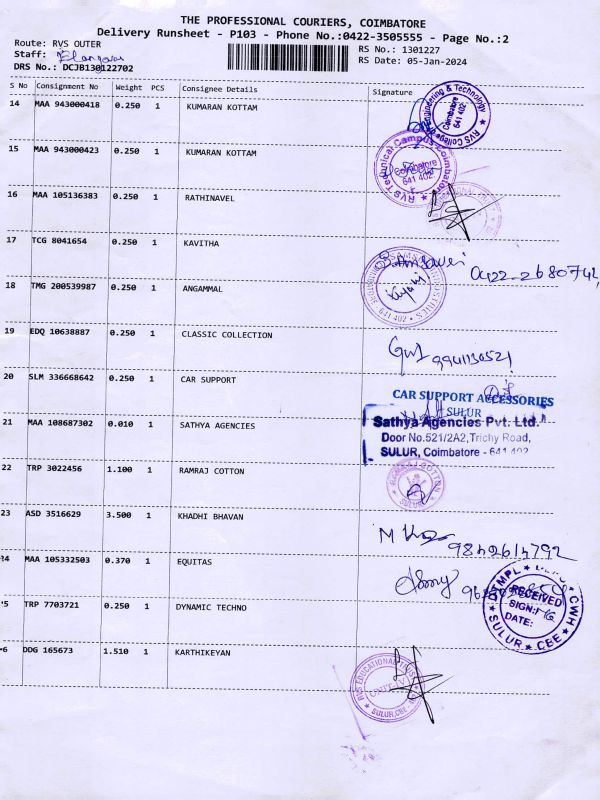 THE PROFESSIONAL COURIERS, COIMBATORE
Delivery Runsheet - P103 - Phone No.:0422-3505555 - Page No.:2
Route: RVS OUTER
RS No.: 1301227
Staff:
RS Date: 05-Jan-2024
DRS No.: DCJB130122702
S No Consignment No Weight PCS Consignee Details Signature
14 MAA 943000418 0.250 1 KUMARAN KOTTAM
RVS College of Engineering & Technology Coimbatore 641 402
15 MAA 943000423 0.250 1 KUMARAN KOTTAM
RVS Technical Campus Coimbatore Coimbatore 641 402
16 MAA 105136383 0.250 1 RATHINAVEL
17 TCG 8041654 0.250 1 KAVITHA
0422-2680742
18 TMG 200539987 0.250 1 ANGAMMAL
INDUSTRIES 641 402
19 EDQ 10638887 0.250 1 CLASSIC COLLECTION
9941130521
20 SLM 336668642 0.250 1 CAR SUPPORT
CAR SUPPORT ACCESSORIES
SULUR
21 MAA 108687302 0.010 1 SATHYA AGENCIES
Sathya Agencies Pvt. Ltd.
Door No.521/2A2,Trichy Road,
SULUR, Coimbatore - 641 402
22 TRP 3022456 1.100 1 RAMRAJ COTTON
RAMRAJ COTTON SULUR
23 ASD 3516629 3.500 1 KHADHI BHAVAN
9842614792
24 MAA 105332503 0.370 1 EQUITAS
25 TRP 7703721 0.250 1 DYNAMIC TECHNO
CWH
RECEIVED
SIGN:
DATE:
SULUR CBE
26 DDG 165673 1.510 1 KARTHIKEYAN
RVS EDUCATIONAL TRUST SULUR, CBE